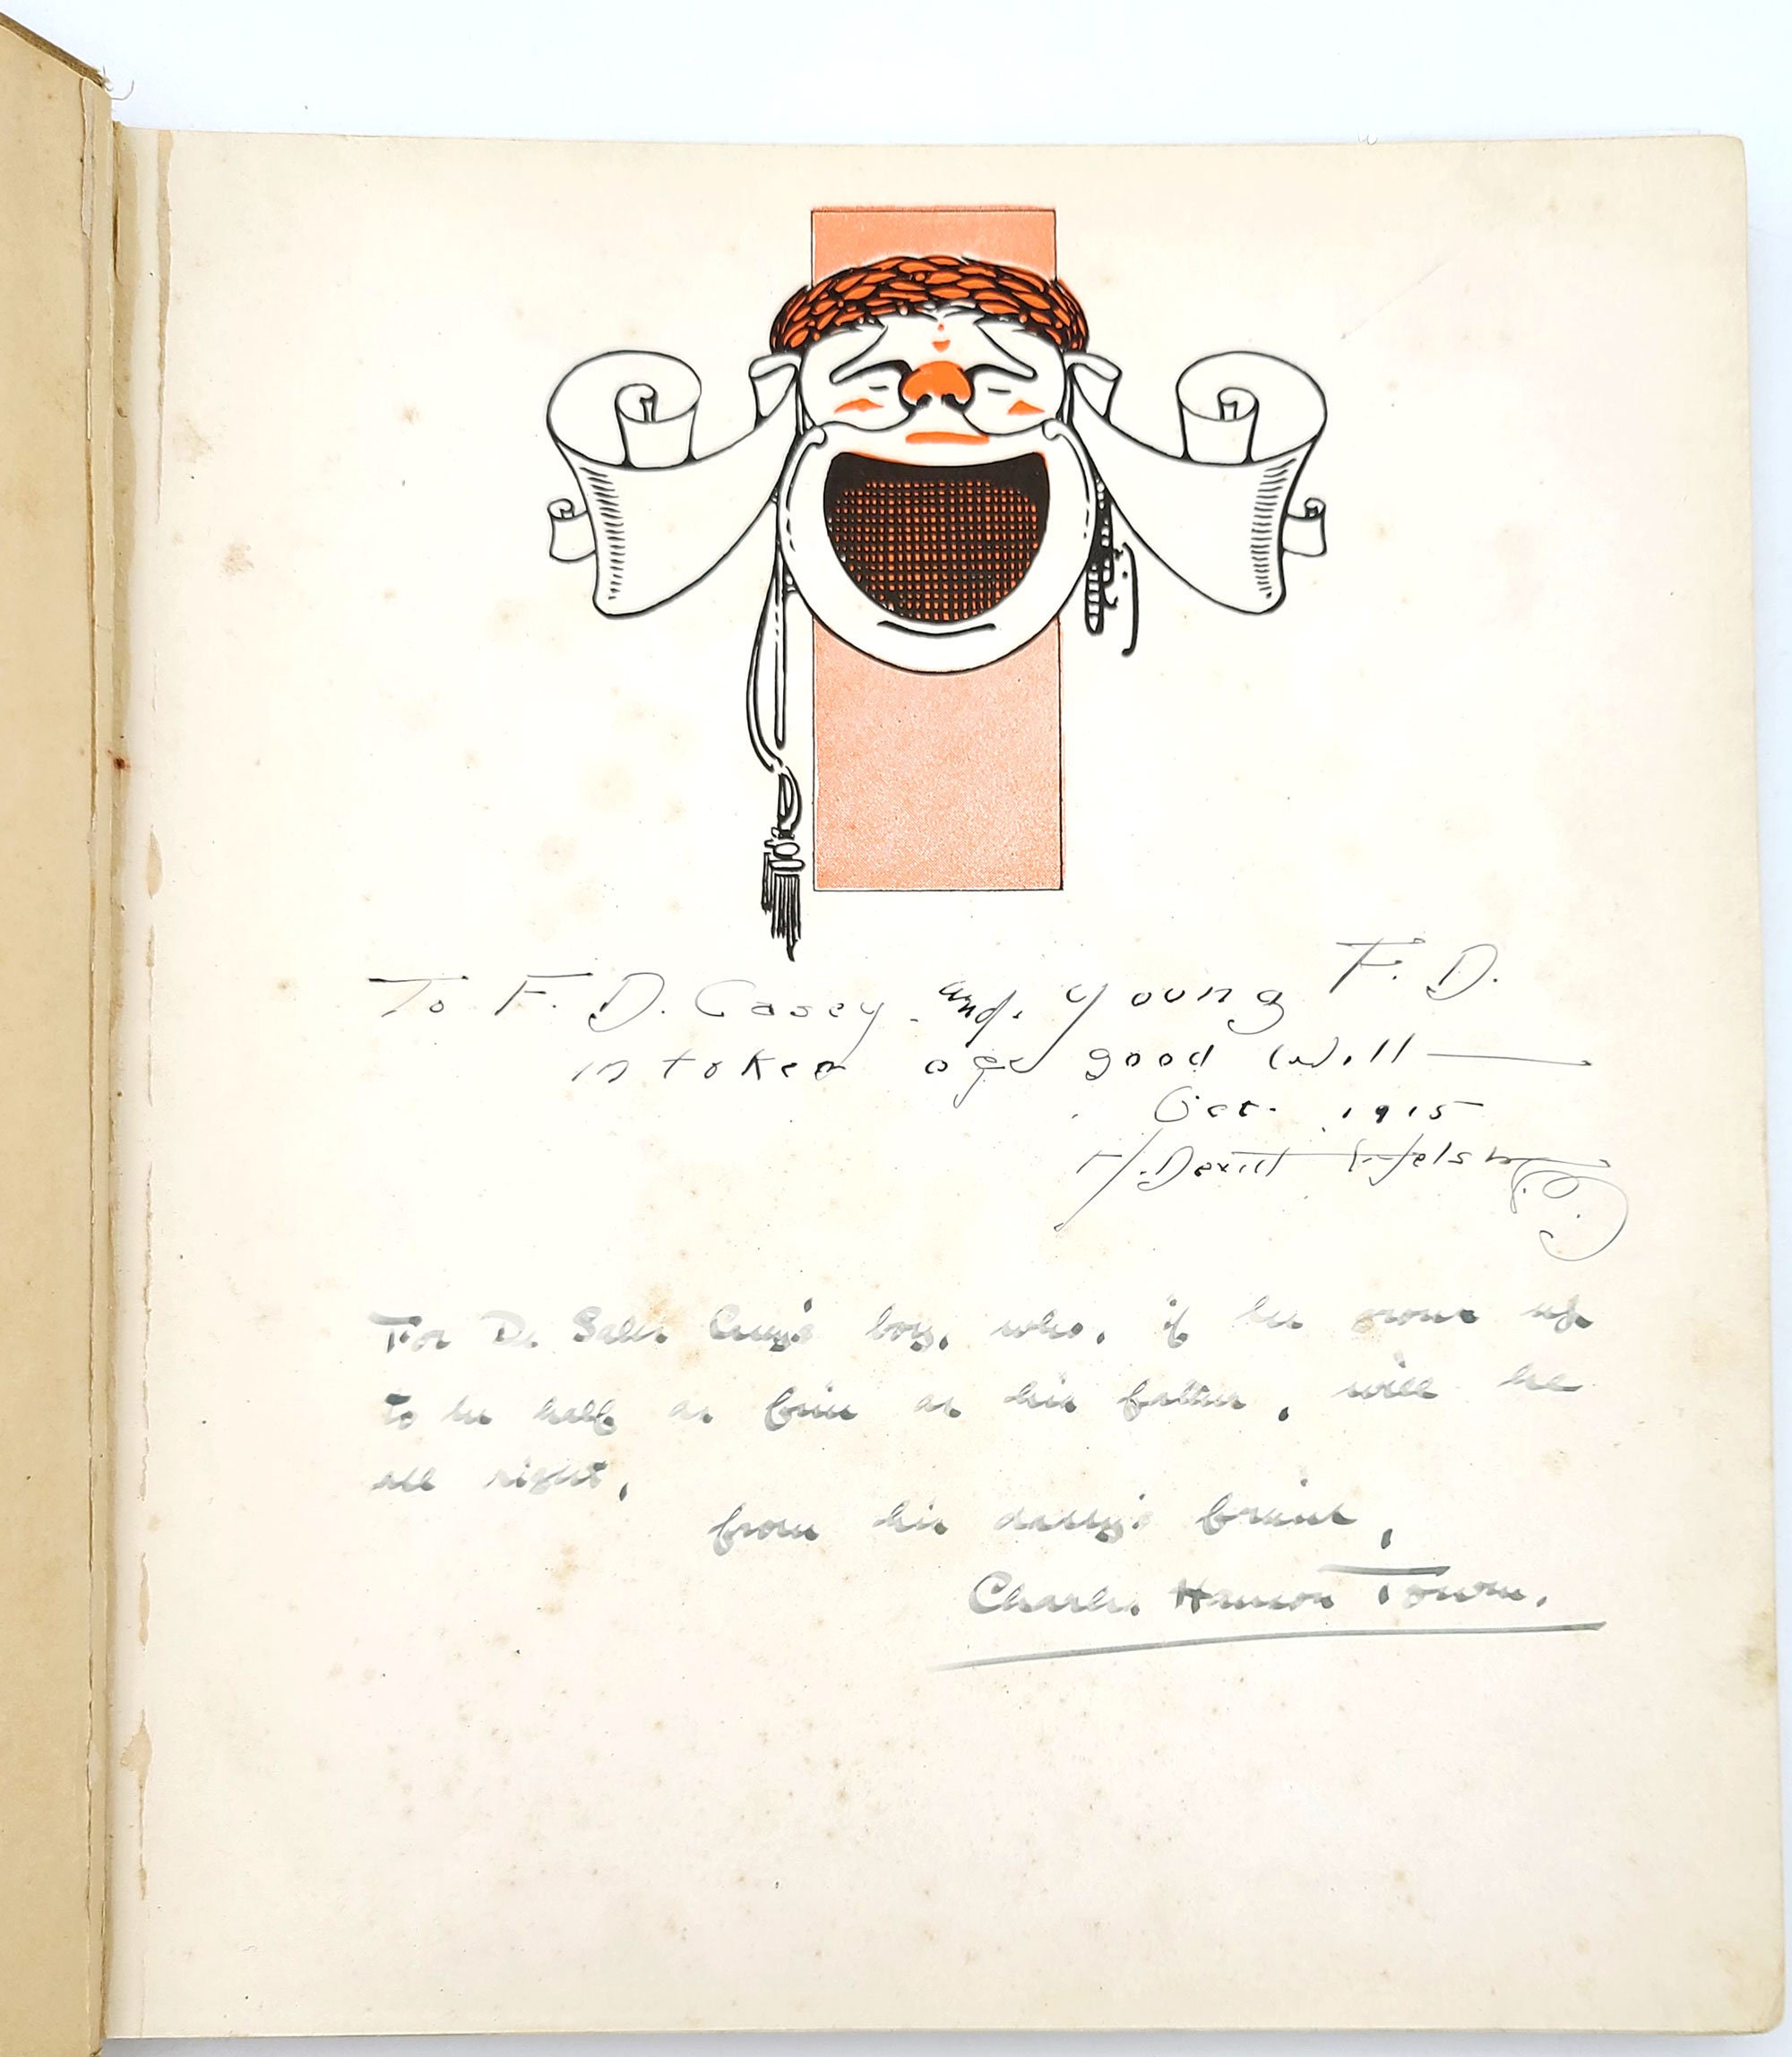 To F. D. Casey and young F. D.
in token of good will
Oct. 1915
H. Devitt Welsh
For De Sales Casey's boy, who, if he grows up
to be half as fine as his father, will be
all right,
from his daddy's friend,
Charles Hanson Towne.